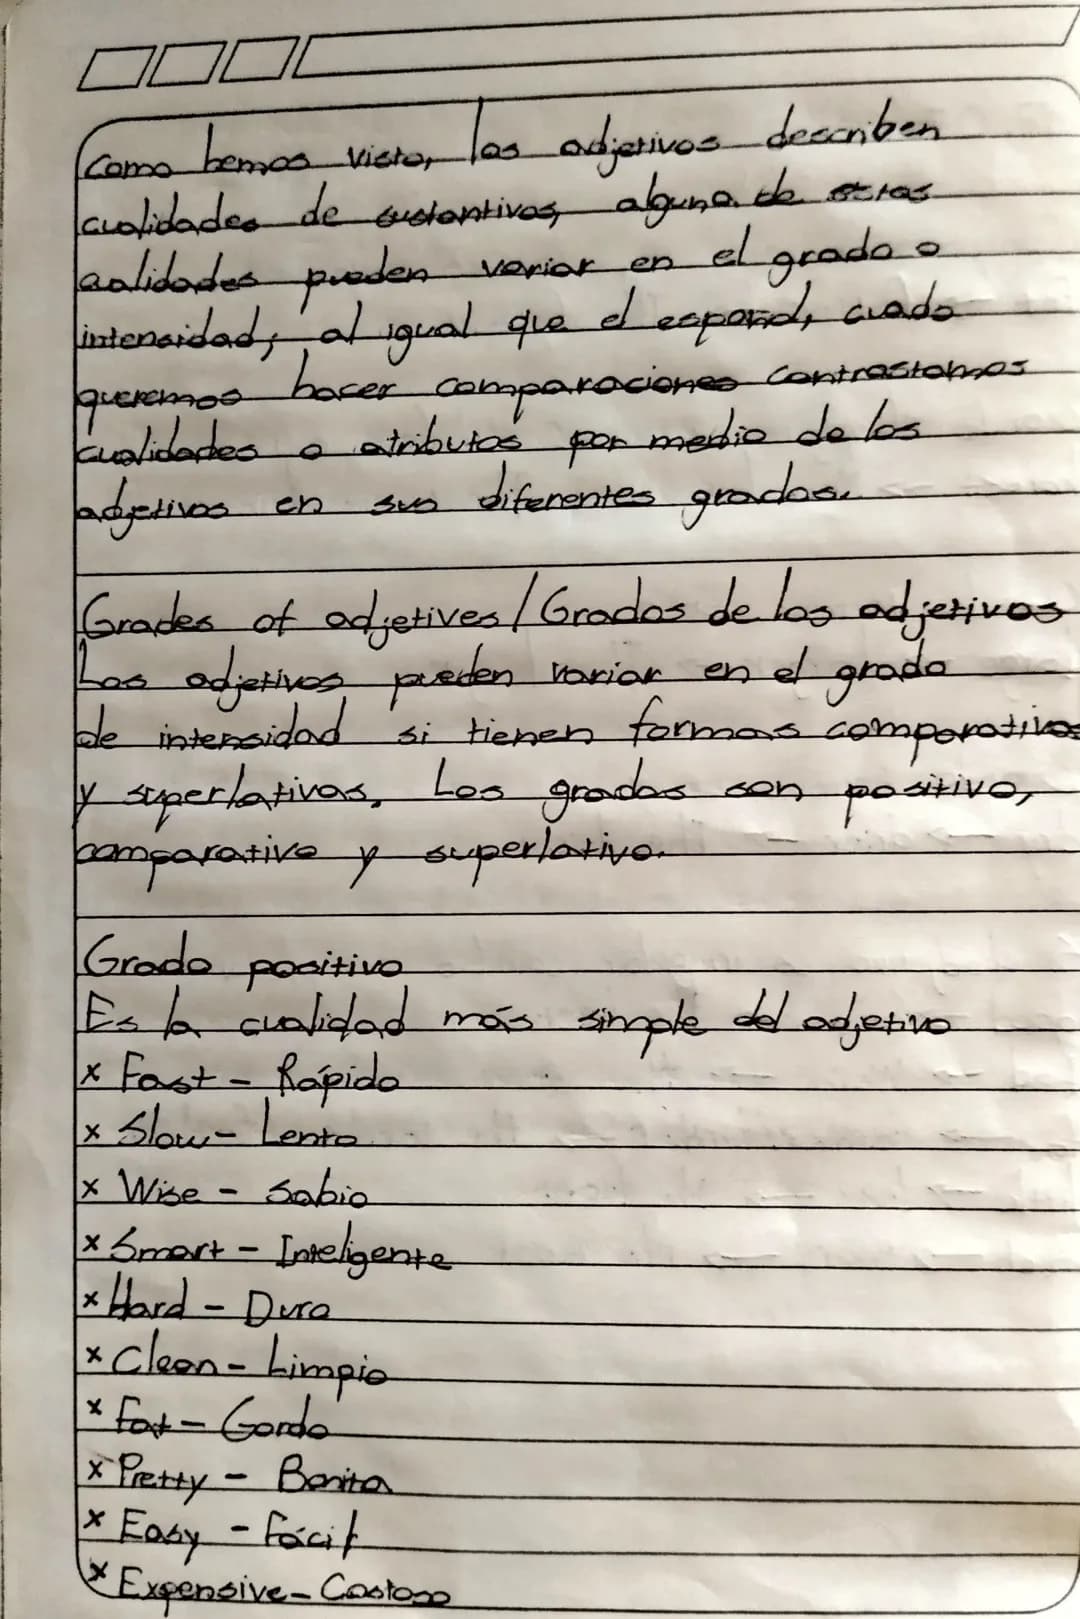 Como hemos visto, los adjetivos describen
cualidades de sustantivos, alguna de estas
calidades pueden variar en el grado o
intensidad, al igual que el español, cuado
queremos hacer comparaciones contrastamos
cualidades o atributos por medio de los
adjetivos en sus diferentes grados.
Grades of adjetives / Grados de los adjetivos
Los adjetivos pueden variar en el grado
de intensidad si tienen formas comparativas
y superlativas. Los grados son positivo,
comparativo y superlativo.
Grado positivo
Es la cualidad más simple del adjetivo
x Fast - Rápido
x Slow - Lento
x Wise - Sabio
x Smart - Inteligente
x Hard - Duro
x Clean - Limpio
x Fat - Gordo
x Pretty - Bonita
x Easy - Fácil
x Expensive - Costoso